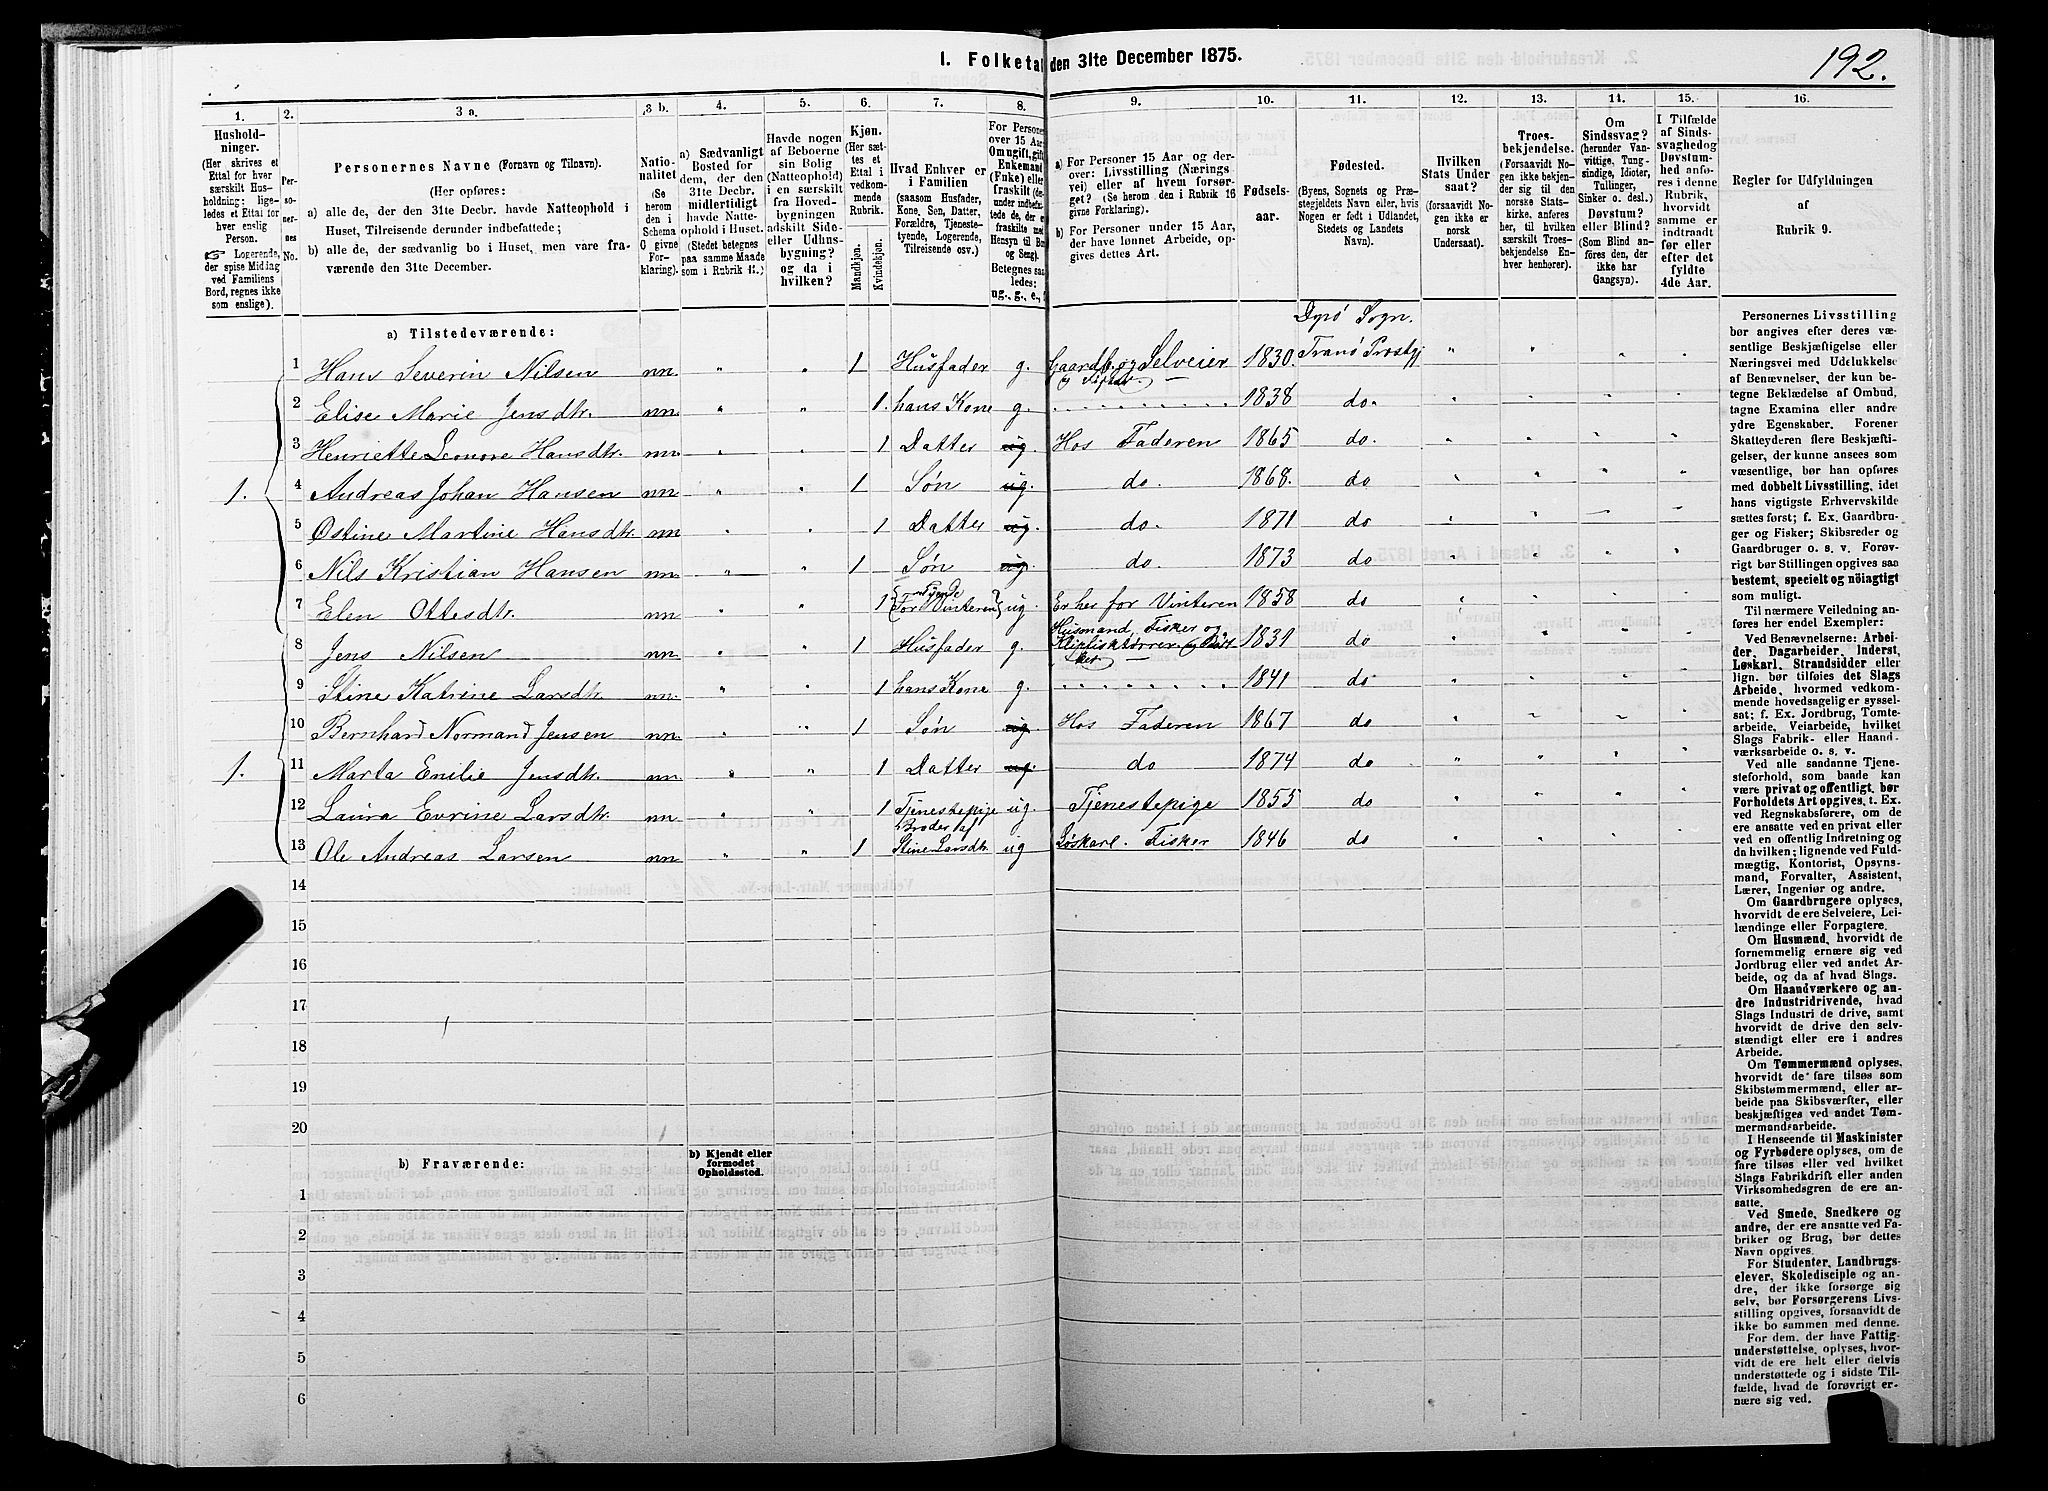 1. Folketal den 31te December 1875.
192.
1.
Hushold-
ninger.
(Her skrives et
Ettal for hver
særskilt Hus-
holdning; lige-
ledes et Ettal for
hver enslig
Person.
☞ Logerende,
der spise Middag
ved Familiens
Bord, regnes ikke
som enslige).
2.
Per-
so-
ner-
nes
No.
3 a.
Personernes Navne (Fornavn og Tilnavn).
(Her opføres:
a) alle de, der den 31te Decbr. havde Natteophold i
Huset, Tilreisende derunder indbefattede;
b) alle de, der sædvanlig bo i Huset, men vare fra-
værende den 31te December.
3 b.
Natio-
nalitet
(Se
herom
den i
Schema
O givne
For-
klaring).
4.
a) Sædvanligt
Bosted for
dem, der den
31te Decbr.
midlertidigt
havde Natte-
ophold i Huset.
(Stedet betegnes
paa samme Maade
som i Rubrik 11.)
5.
Havde nogen
af Beboerne
sin Bolig
(Natteophold)
i en særskilt
fra Hoved-
bygningen
adskilt Side-
eller Udhus-
bygning?
og da i
hvilken?
6.
Kjøn.
(Her sæt-
tes et
Ettal i
vedkom-
mende
Rubrik.
Mandkjøn.
Kvindekjøn.
7.
Hvad Enhver er
i Familien
(saasom Husfader,
Kone, Søn, Datter,
Forældre, Tjeneste-
tyende, Logerende,
Tilreisende osv.)
8.
For Personer
over 15 Aar:
Om ugift, gift,
Enkemand
(Enke) eller
fraskilt
Betegnes saa-
ledes:
ug., g., e.,
9.
a) For Personer 15 Aar og der-
over: Livsstilling (Nærings-
vei) eller af hvem forsør-
get? (Se herom den i Rubrik 16
givne Forklaring).
b) For Personer under 15 Aar,
der have lønnet Arbeide, op-
gives dettes Art.
10.
Fødsels-
aar.
11.
Fødested.
(Byens, Sognets og Præ-
stegjeldets Navn eller, hvis
Nogen er født i Udlandet,
Stedets og Landets
Navn).
12.
Hvilken
Stats Under-
saat?
(forsaavidt No-
gen ikke er
norsk
Undersaat).
13.
Troes-
bekjendelse.
(Forsaavidt No-
gen ikke bekjen-
der sig til den
norske Stats-
kirke, anføres
her, til hvilken
særskilt Troes-
bekjendelse En-
hver henhører).
14.
Om
Sindssvag?
(herunder Van-
vittige, Tung-
sindige, Idioter,
Tullinger,
Sinker o. desl.)
Døvstum?
eller Blind?
(Som Blind an-
føres den, der
ikke har
Gangsyn).
15.
I Tilfælde
af Sinds-
svaghed og
Døvstum-
hed anfø-
res i denne
Rubrik,
hvorvidt
samme er
indtraadt
før eller
efter det
fyldte
4de Aar.
16.
Regler for Udfyldningen
af
Rubrik 9.
a) Tilstedeværende:
Dyrø Sogn.
1. 1 Hans Severin Nilsen nn. " " 1 Husfader g. Gaardb. og Selveier 1830. Tranø Prestgj " " " "
og Fisker
2 Elise Marie Jensdtr. nn. " " 1. hans Kone g. 1838 do.
3 Henriette Leonore Hansdtr. nn. " " 1 Datter ug. Hos Faderen 1865 do.
4 Andreas Johan Hansen nn. " " 1 Søn ug. do. 1868. do
5 Ostine Martine Hansdtr. nn. " " 1 Datter ug. do. 1871 do
6 Nils Kristian Hansen nn. " " 1 Søn ug. do. 1873 do
7 Elen Ottesdtr. nn. " " 1 For Vinteren ug. Er her for Vinteren 1858 do
Husmand, Fisker og
8 Jens Nilsen nn. " " 1 Husfader g. Klipfisktørrer 1831 do
9 Stine Katrine Larsdtr. nn. " " 1 hans Kone g. 1841 do
10 Bernhard Normand Jensen nn. " " 1 Søn ug. Hos Faderen 1867 do
1. 11 Marta Emilie Jensdtr. nn. " " 1 Datter ug. do 1874 do
12 Laura Evrine Larsdtr. nn. " " 1 Tjenestepige ug. Tjenestepige 1855 do
Broder af
13 Ole Andreas Larsen nn. " " 1 Stine Larsdtr. ug Løskarl. Fisker 1846 do
14
15
16
17
18
19
20
b) Fraværende:
b) Kjendt eller
formodet
Opholdssted.
1
2
3
4
5
6
Personernes Livsstilling
bør angives efter deres væ-
sentlige Beskjæftigelse eller
Næringsvei med Udelukkelse
af Benævnelser, der kun be-
tegne Beklædelse af Ombud,
tagne Examina eller andre
ydre Egenskaber. Forener
Skatteyderen flere Beskjæfti-
gelser, der kunne ansees som
væsentlige, bør han opføres
med dobbelt Livsstilling, idet
hans vigtigste Erhvervskilde
sættes først; f. Ex. Gaardbru-
ger og Fisker; Skibsreder og
Gaardbruger o. s. v. Forøv-
rigt bør Stillingen opgives saa
bestemt, specielt og nöiagtigt
som muligt.
Til nærmere Veiledning an-
føres her endel Exempler:
Ved Benævnelserne: Arbei-
der, Dagarbeider, Inderst,
Løskarl, Strandsidder eller
lign. bør tilføies det Slags
Arbeide, hvormed vedkom-
mende hovedsagelig er syssel-
sat; f. Ex. Jordbrug, Tomte-
arbeide, Veiarbeide, hvilket
Slags Fabrik- eller Haand-
værksarbeide o. s. v.
Ved alle saadanne Tjene-
steforhold, som baade kan
være privat og offentligt, bør
Forholdets Art opgives, t. Ex.
ved Regnskabsførere, om de
ere ansatte ved en privat eller
ved en offentlig Indretning og
da hvilken; lignende ved Fuld-
mægtig, Kontorist, Opsyns-
mand, Forvalter, Assistent,
Lærer, Ingeniør og andre.
Om Gaardbrugere oplyses,
hvorvidt de ere Selveiere, Lei-
lændinge eller Forpagtere.
Om Husmænd, hvorvidt de
fornemmelig ernære sig ved
Jordbrug eller ved andet Ar-
beide, og da af hvad Slags.
Om Haandværkere og an-
dre Industridrivende, hvad
Slags Industri de drive, samt
hvorvidt de drive den selv-
stændigt eller ere i andres
Arbeide.
Om Tømmermænd oplyses,
hvorvidt de fare tilsøs som
Skibstømmermænd, eller ar-
beide paa Skibsværfter, eller
beskjæftiges ved andet Tøm-
mermandsarbeide.
I Henseende til Maskinister
og Fyrbødere oplyses, om de
fare tilsøs eller ved hvilket
Slags Fabrikdrift eller anden
Virksomhedsgren de ere an-
satte.
Ved Smede, Snedkere og
andre, der ere ansatte ved Fa-
briker og Brug, bør dettes
Navn opgives.
For Studenter, Landbrugs-
elever, Skoledisciple og an-
dre, der ikke forsørge sig
selv, bør Forsørgerens Livs-
stilling opgives, forsaavidt de
ikke bo sammen med denne.
For dem, der have Fattig-
understøttelse, oplyses, hvor-
vidt de ere helt eller delvis
understøttede og i sidste Til-
fælde, hvad de forøvrigt er-
nære sig ved.